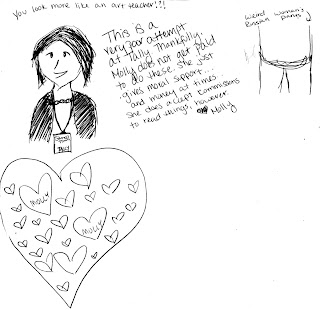 You look more like an art teacher!!!
This is a
very poor attempt
at Tally. Thankfully,
Molly does not get paid
to do these. She just
gives moral support...
and money at times.
She does accept commissions
to read things, however.
Molly
weird woman's
Russian pants
TALLY
MOLLY
MOLLY